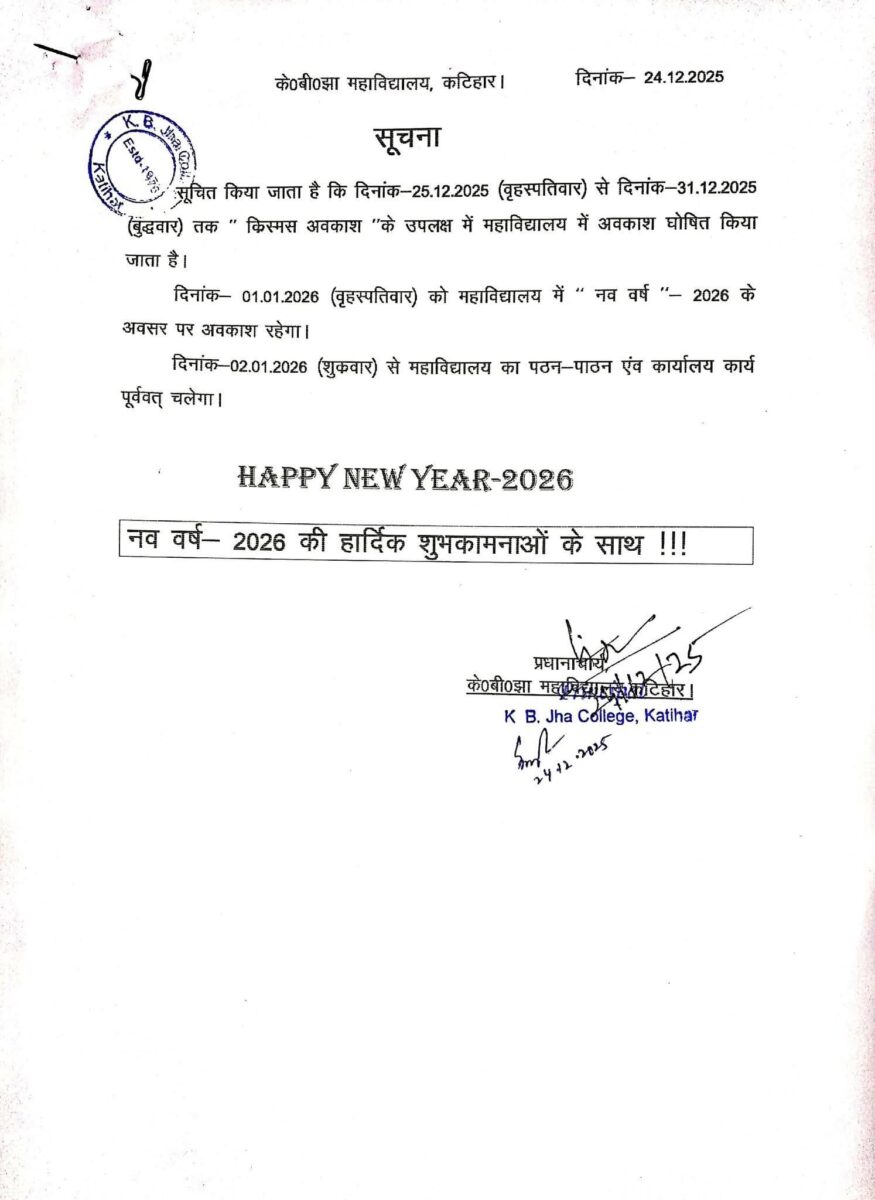 के0बी0झा महाविद्यालय, कटिहार। दिनांक– 24.12.2025
सूचना
K. B. Jha
Estd-19
Katihar
सूचित किया जाता है कि दिनांक–25.12.2025 (वृहस्पतिवार) से दिनांक–31.12.2025
(बुद्धवार) तक " किस्मस अवकाश "के उपलक्ष में महाविद्यालय में अवकाश घोषित किया
जाता है।
दिनांक– 01.01.2026 (वृहस्पतिवार) को महाविद्यालय में " नव वर्ष "– 2026 के
अवसर पर अवकाश रहेगा।
दिनांक–02.01.2026 (शुकवार) से महाविद्यालय का पठन–पाठन एंव कार्यालय कार्य
पूर्ववत् चलेगा।
HAPPY NEW YEAR-2026
नव वर्ष– 2026 की हार्दिक शुभकामनाओं के साथ !!!
प्रधानाचार्य,
के0बी0झा महाविद्यालय, कटिहार।
K B. Jha College, Katihar
24.12.2025